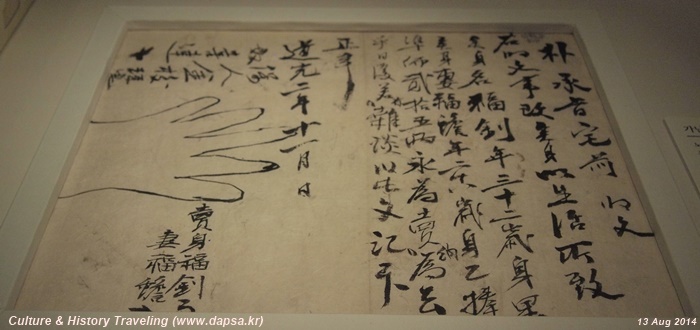 朴承旨宅前 明文
右明文事段矣身以生活所致
矣身名福釗年三十二歲身果
矣身妻福蟾年二十八歲身乙捧
準價貳拾五兩永爲賣喩爲去
乎日後若有雜談以此文記卞
正事
道光二年十一月 日
賣身福釗
妻福蟾
人金
Culture & History Traveling (www.dapsa.kr)
13 Aug 2014